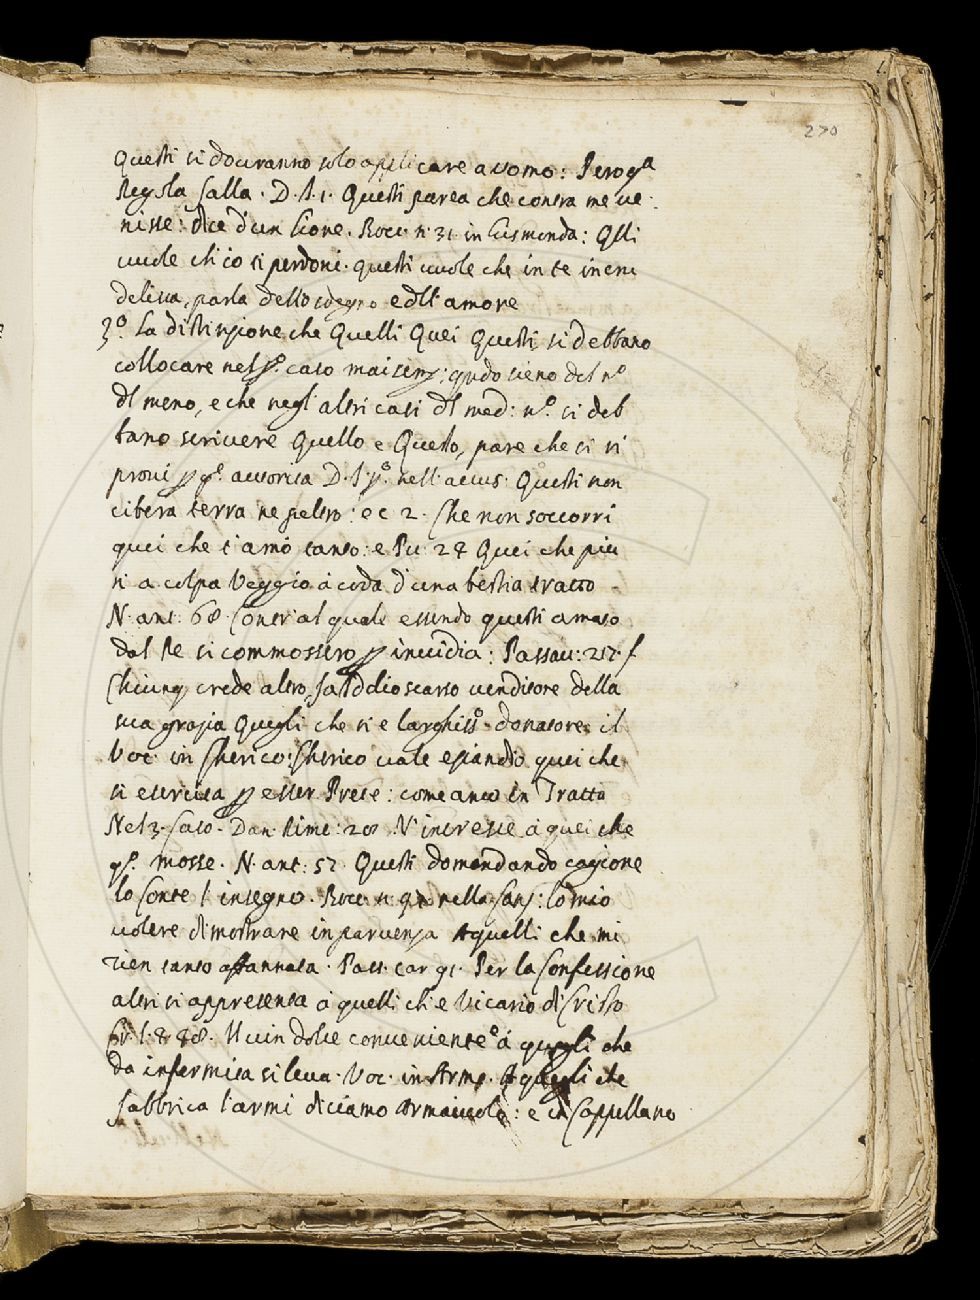 270
Questi si douranno solo applicare a uomo: Però q.ta
Regola falla. D. I. 1. Questi parea che contra me ue-
nisse: dice d'un lione. Bocc. n. 31 in Gismonda: Qlli
uuole ch'io ti perdoni. questi uuole che in te incru
delisca, parla dello sdegno e dll'amore
3.º La distinzione che Quelli Quei Questi, si debbano
collocare nel p.º caso mai sem: qndo sieno del n.º
dl meno, e che negl'altri casi dl med: n.º si deb
bano scriuere Quello e Questo, pare che si ri
proui p autorità D. I. p.º nell'accus: Questi non
ciberà terra ne peltro: e c 2. Che non soccorri
quei che t'amò tanto: e Pu: 24 Quei che più
n'a colpa Veggio a coda d'una bestia tratto
N. ant: 68. Contr'al quale essendo questi amato
dal Re si commossero p inuidia: Passau: 217. f
Chiunq crede altro, fa Iddio scarso uenditore della
sua grazia Quegli che n'è larghiss.º donatore. il
Voc. in Cherico: Cherico uale eziandio quei che
si esercita p esser Prete: come anco in Tratto
Nel 3. Caso. Dan. Rime: 28. N'incresce a quei che
mosse. N. ant: 52. Questi domandando cagione
lo Conte l'insegnò. Bocc. n. 97 nella Canz: lo mio
uolere dimostrare in paruenza A quelli che mi
tien tanto affannata. Pass. car 91. Per la Confessione
altri si appresenta a quelli ch'è Vicario di Cristo
Il uin dolce conueniente è a quegli che
da infermità si leua. Voc. in Arme. A quegli che
fabbrica l'armi diciamo Armaiuolo: e in Cappellano